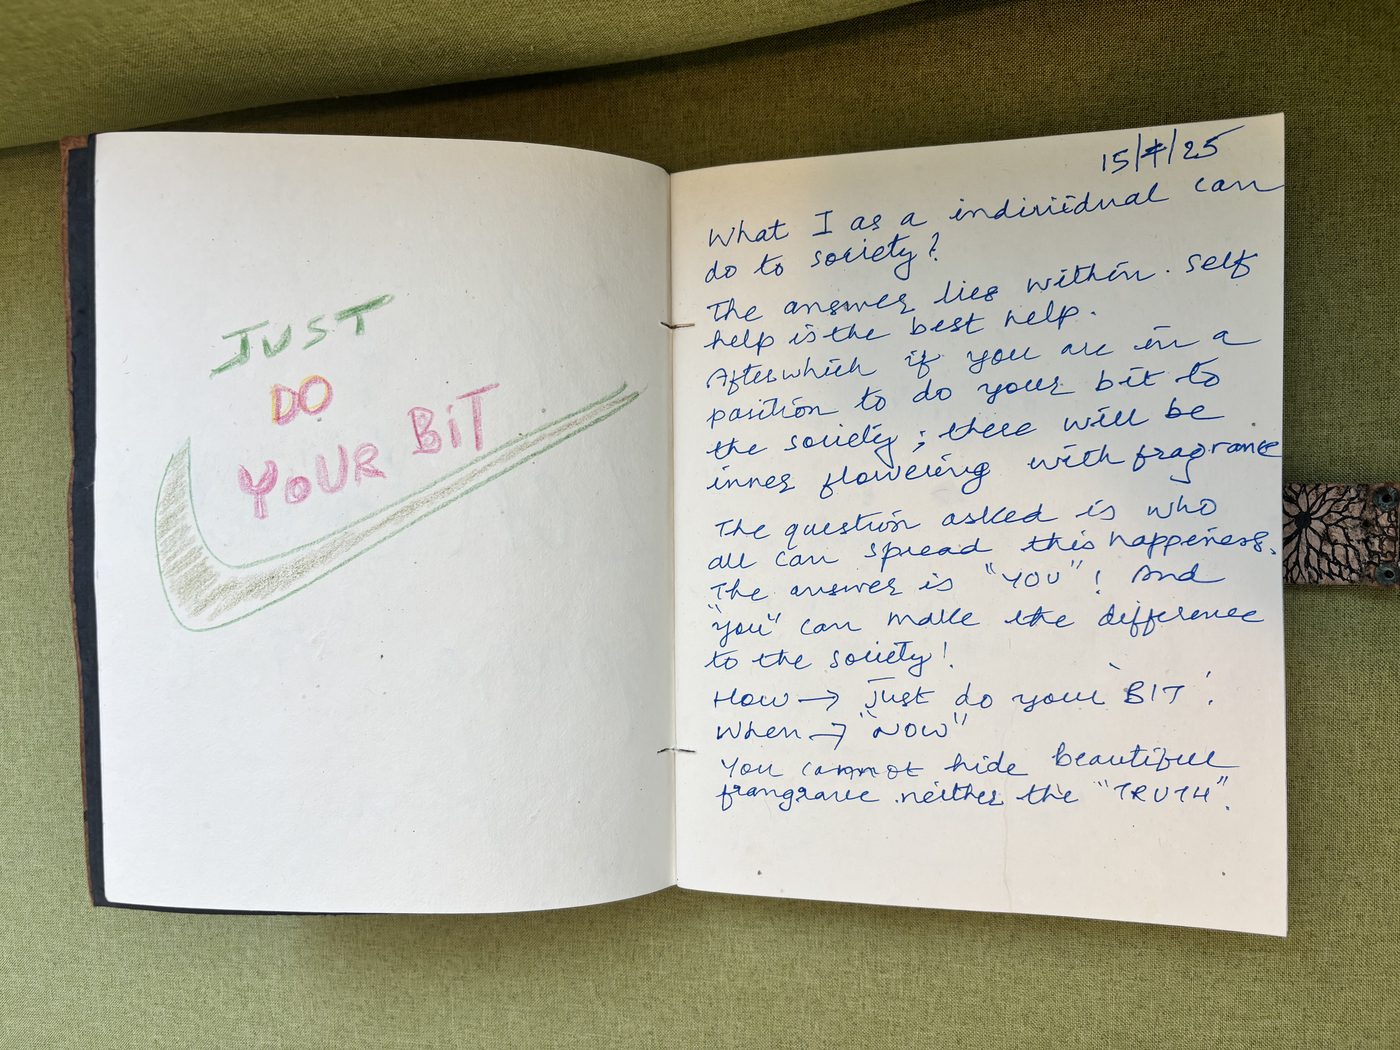 JUST
DO
YOUR BiT
15/4/25
What I as a individual can
do to society?
The answer lies within. Self
help is the best help.
Afterwhich if you are in a
position to do your bit to
the society; there will be
inner flowering with fragrance
The question asked is who
all can spread this happeness.
The answer is "YOU"! And
"You" can make the difference
to the society!
How → Just do your 'BIT'.
When → "NOW"
You cannot hide beautiful
frangrance neither the "TRUTH".